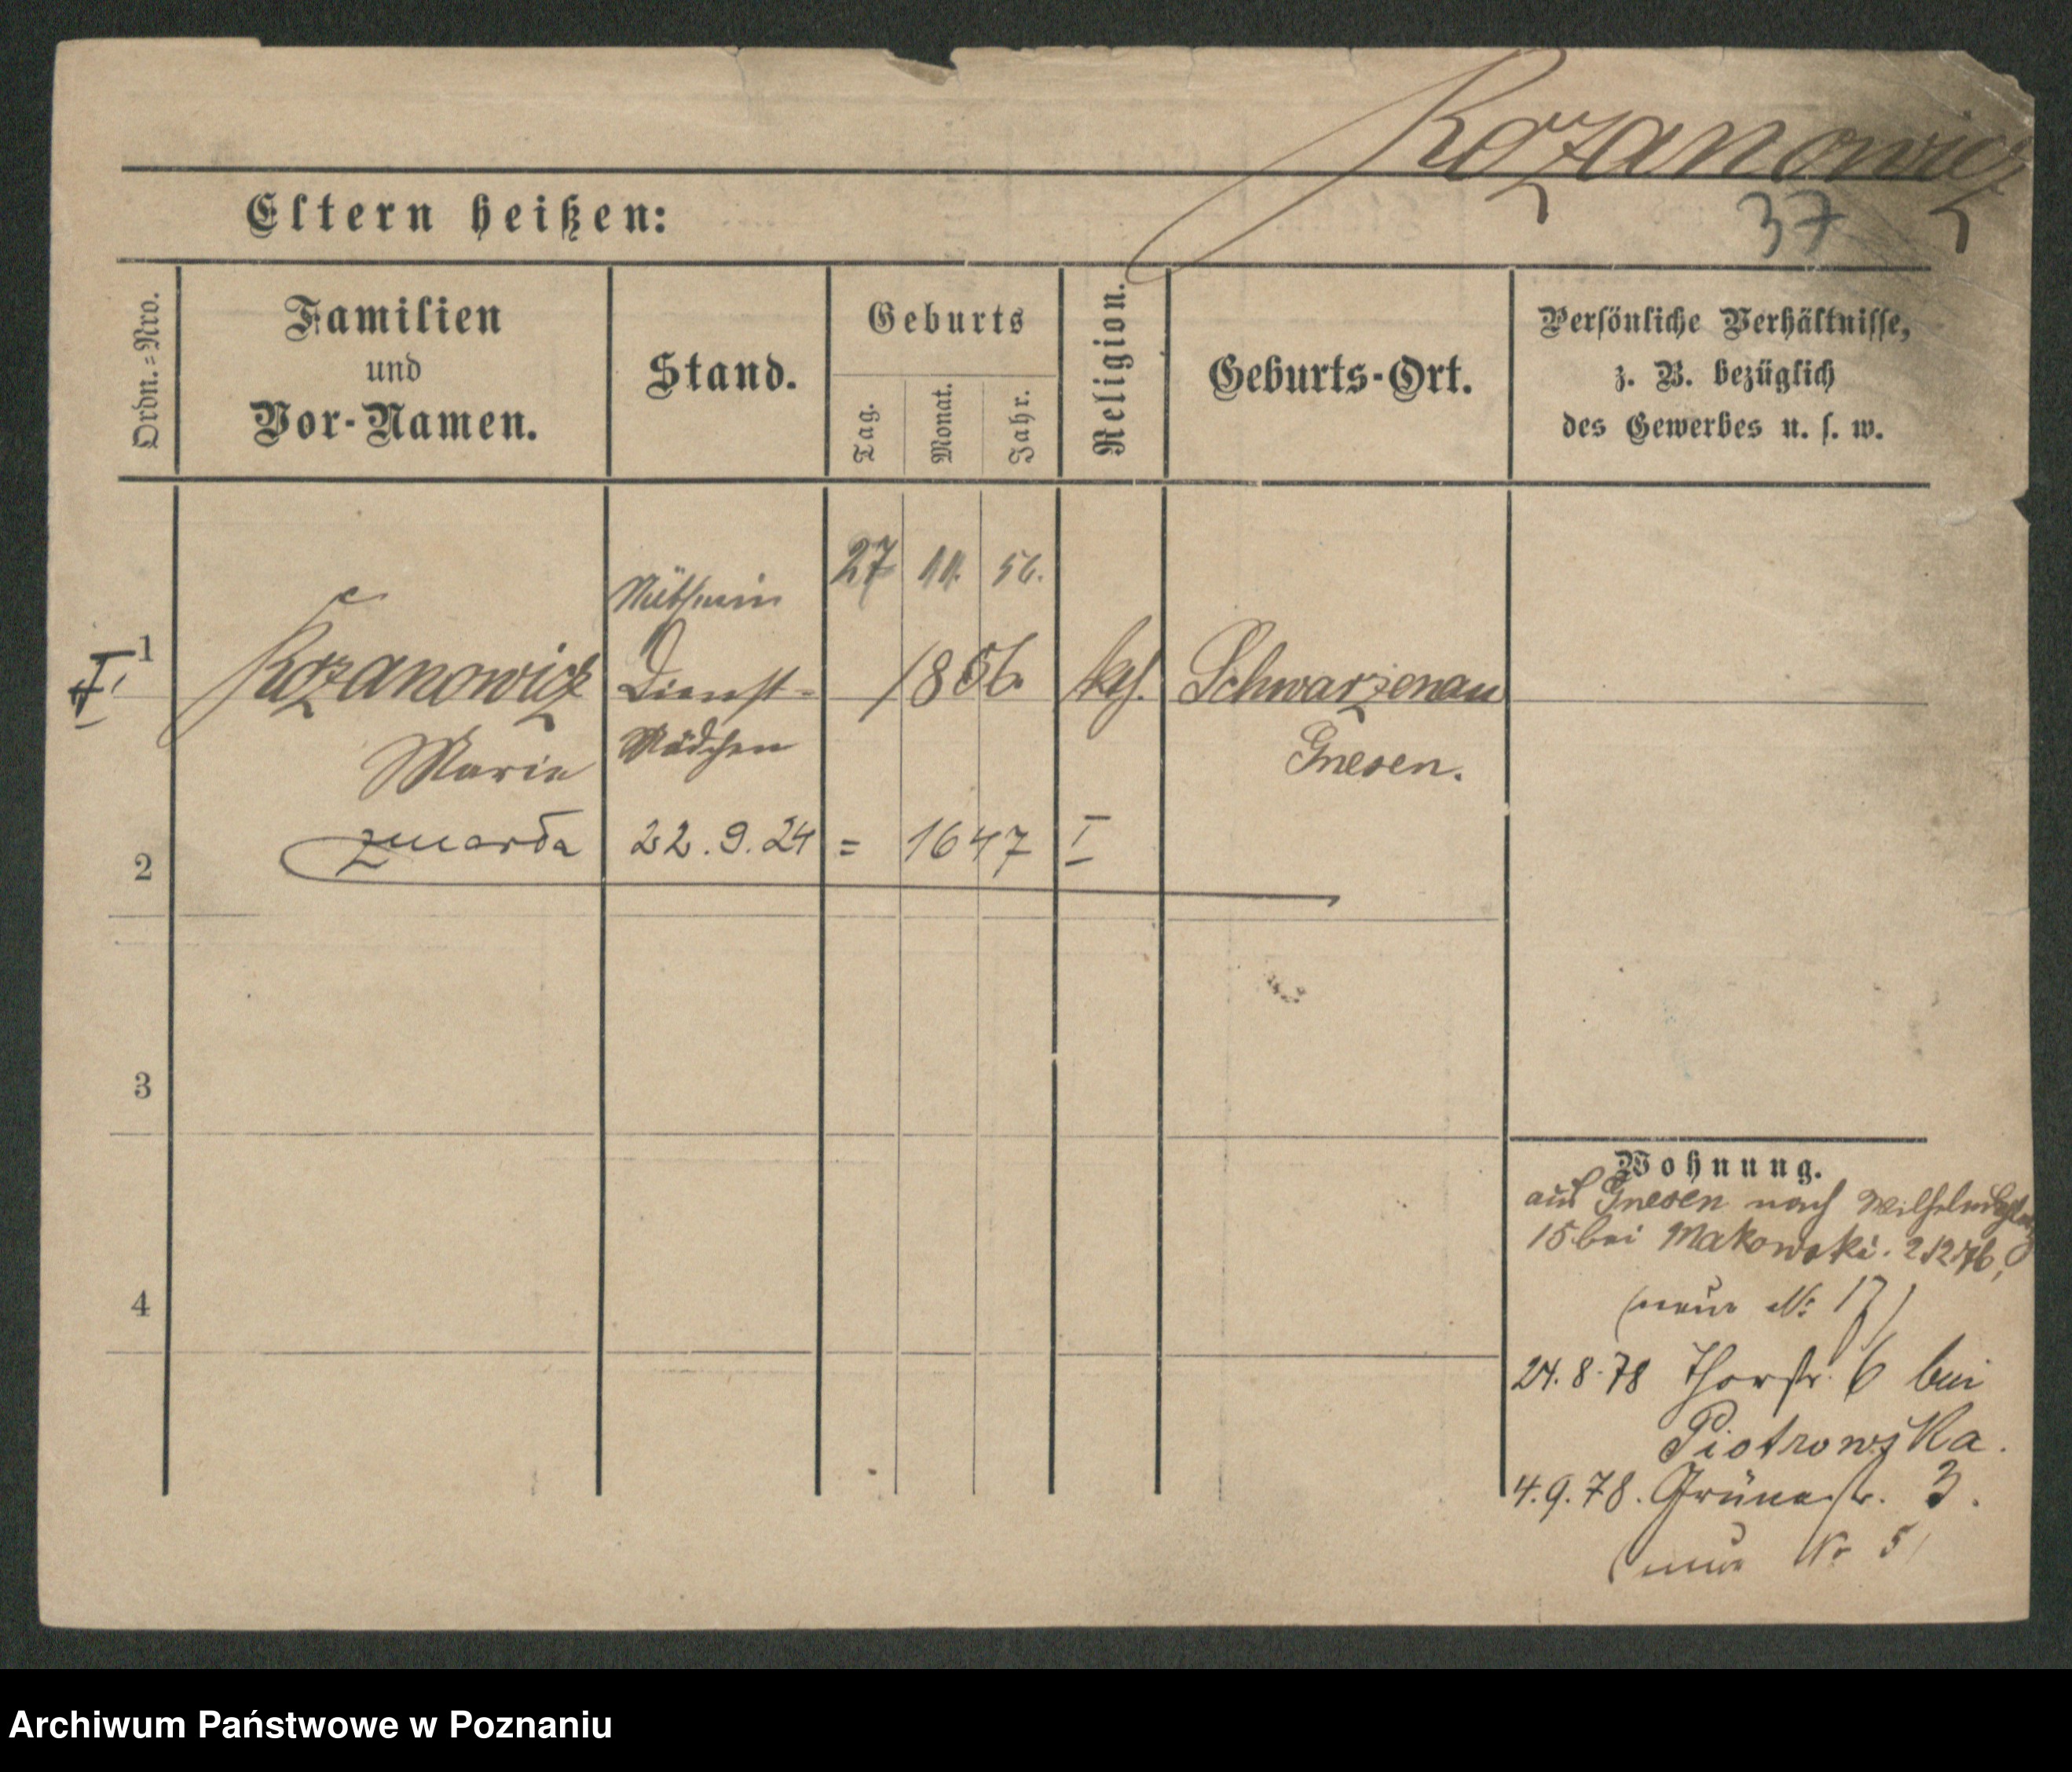 Kozanowicz
37
Eltern heißen:
Ordn.=Nro.
Familien
und
Vor-Namen.
Stand.
Geburts
Tag.
Monat.
Jahr.
Religion.
Geburts-Ort.
Persönliche Verhältnisse,
z. B. bezüglich
des Gewerbes u. s. w.
27 11. 56.
1 I. Kozanowicz Dienst- 1856. kath. Schwarzenau
Marie Mädchen Gnesen.
2 zmarła 22.9.24 = 1647 I
3
4
Wohnung.
aus Gnesen nach
15 bei Makowski.
(neue № 17)
24.8.78 Thorstr. 6 bei
Piotrowska.
4.9.78. Grünestr. 3.
(neue No 5)
Archiwum Państwowe w Poznaniu